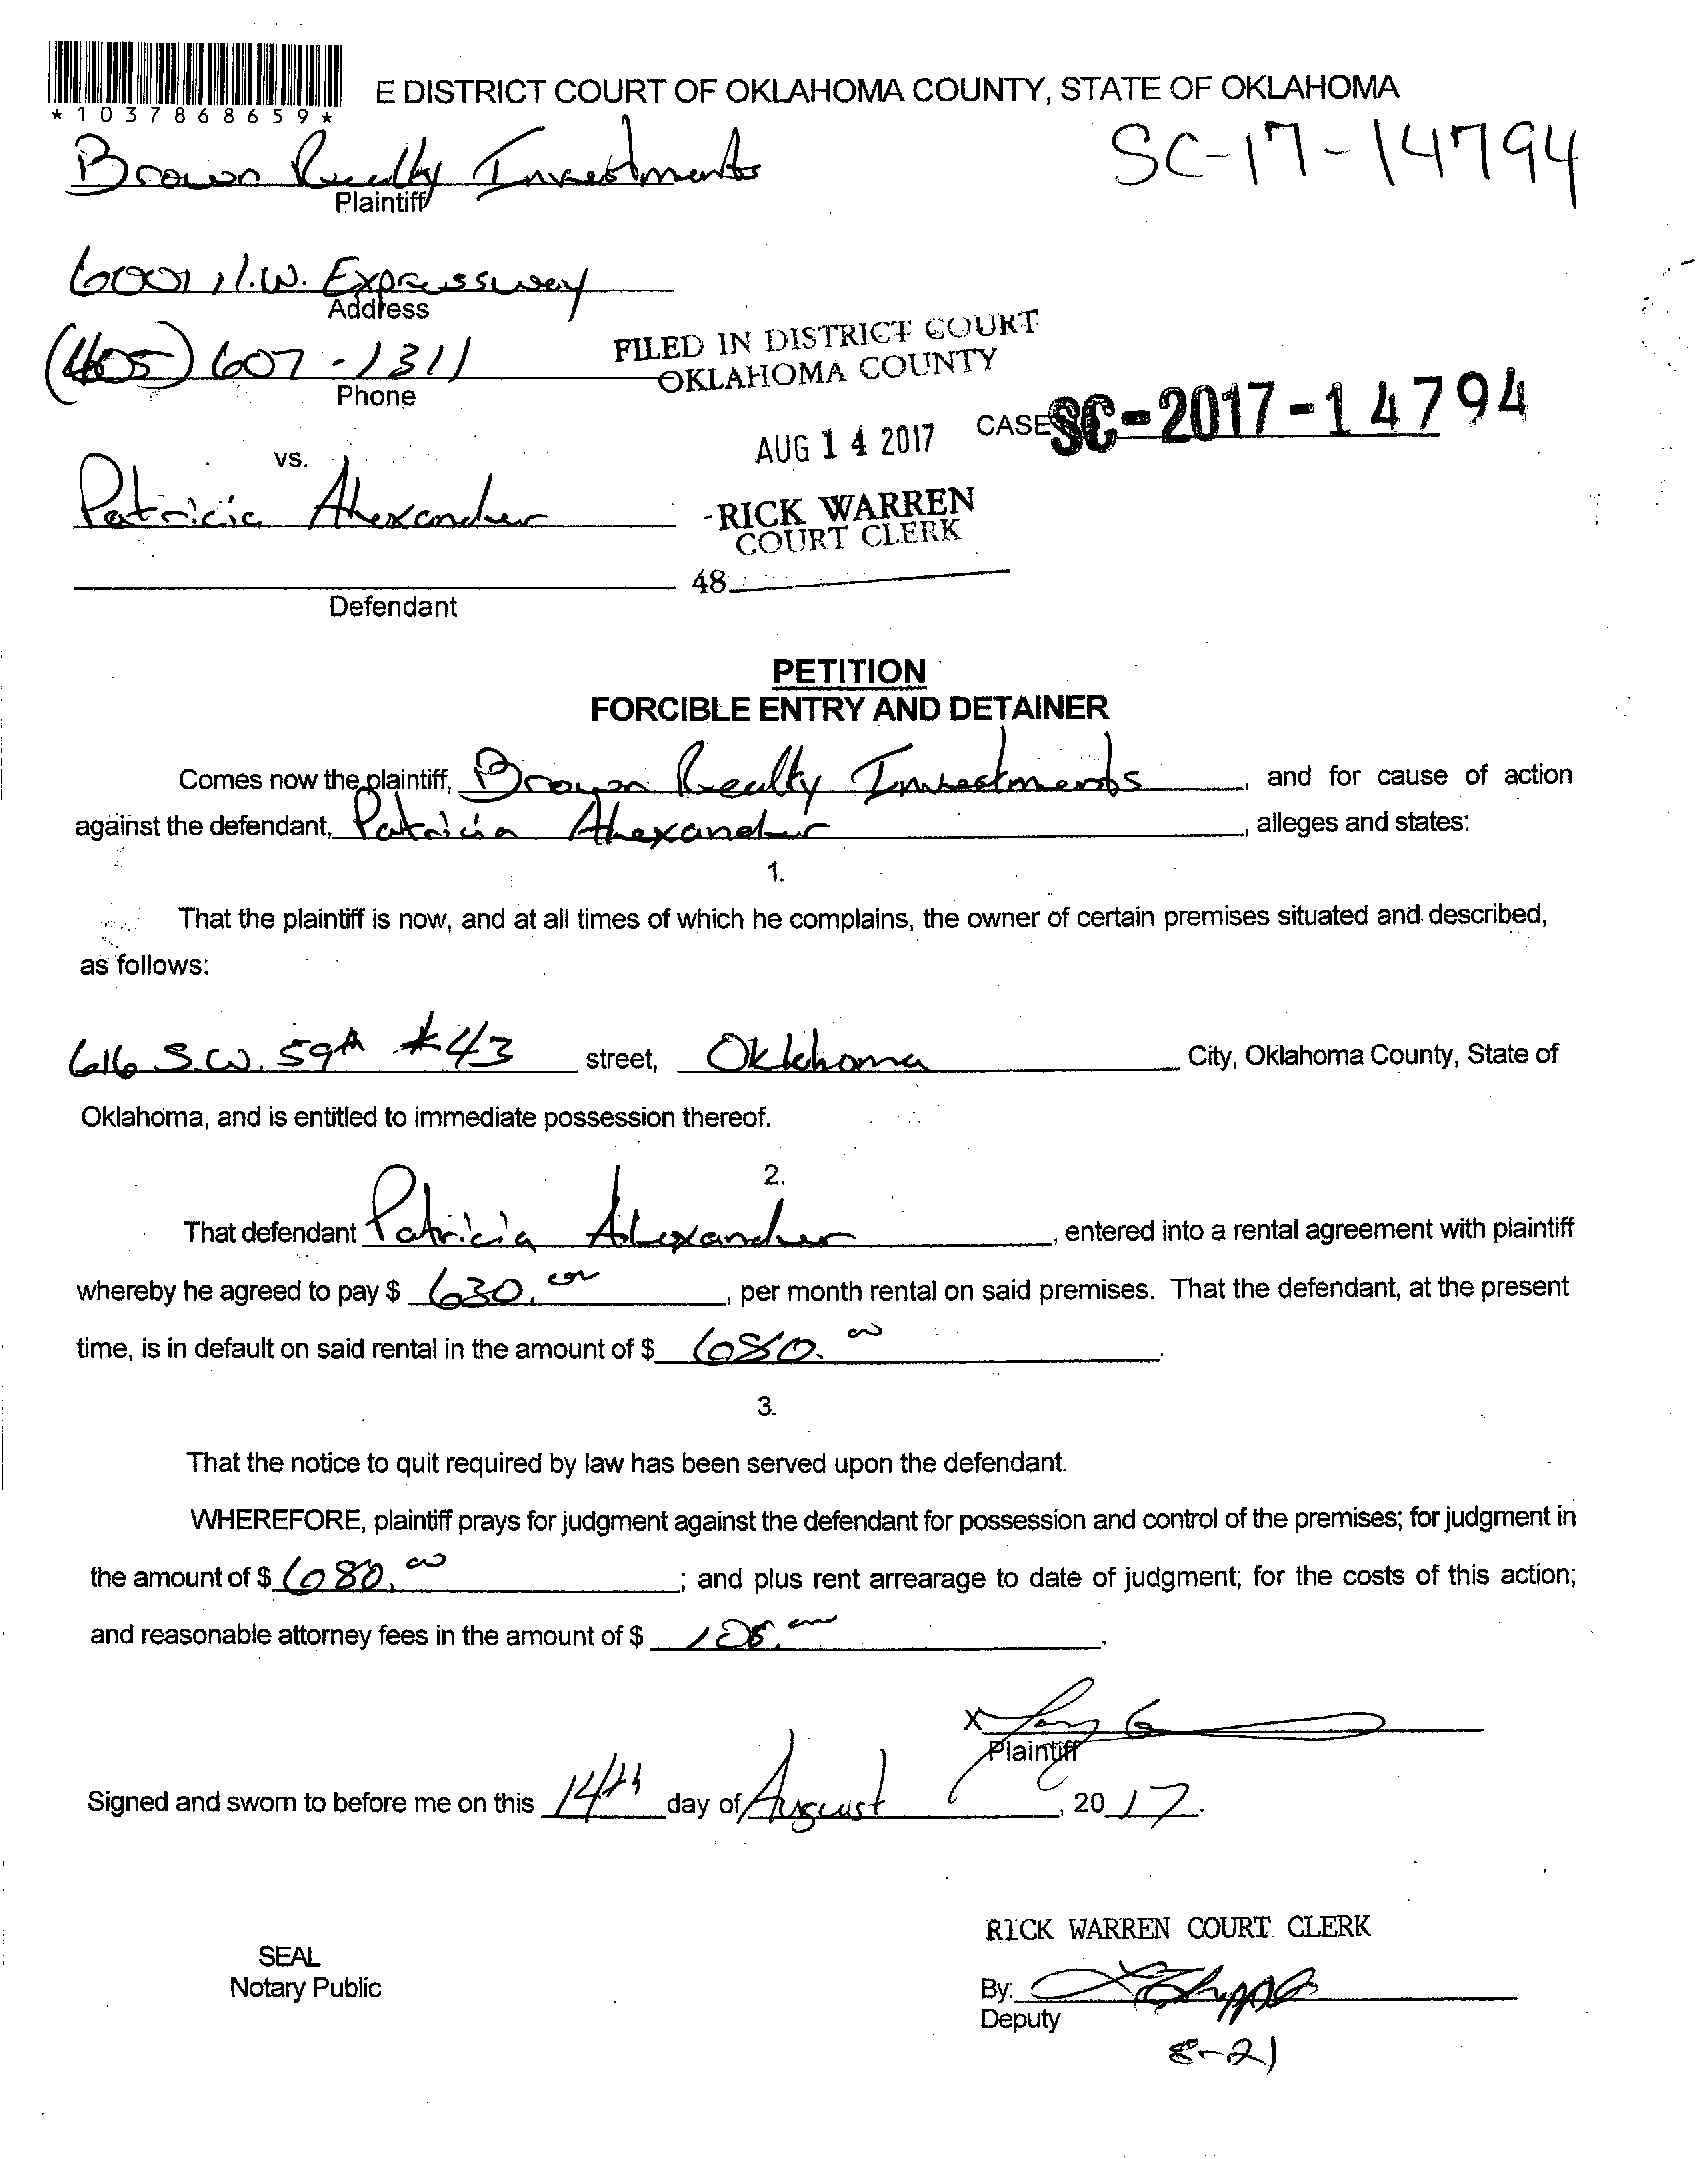 E DISTRICT COURT OF OKLAHOMA COUNTY, STATE OF OKLAHOMA
*1037868659*
Brown Realty Investments
SC-17-14794
Plaintiff
6001 N.W. Expressway
Address
(405) 607-1311
Phone
FILED IN DISTRICT COURT
OKLAHOMA COUNTY
CASE SC-2017-14794
AUG 14 2017
vs.
Patricia Alexander
RICK WARREN
COURT CLERK
48
Defendant
PETITION
FORCIBLE ENTRY AND DETAINER
Comes now the plaintiff, Brown Realty Investments, and for cause of action
against the defendant, Patricia Alexander, alleges and states:
1.
That the plaintiff is now, and at all times of which he complains, the owner of certain premises situated and described,
as follows:
616 S.W. 59th #43 street, Oklahoma City, Oklahoma County, State of
Oklahoma, and is entitled to immediate possession thereof.
2.
That defendant Patricia Alexander, entered into a rental agreement with plaintiff
whereby he agreed to pay $ 630.00, per month rental on said premises. That the defendant, at the present
time, is in default on said rental in the amount of $ 680.00.
3.
That the notice to quit required by law has been served upon the defendant.
WHEREFORE, plaintiff prays for judgment against the defendant for possession and control of the premises; for judgment in
the amount of $ 680.00; and plus rent arrearage to date of judgment; for the costs of this action;
and reasonable attorney fees in the amount of $ .
X
Plaintiff
Signed and sworn to before me on this 14th day of August, 2017.
RICK WARREN COURT CLERK
SEAL
Notary Public
By:
Deputy
8-21